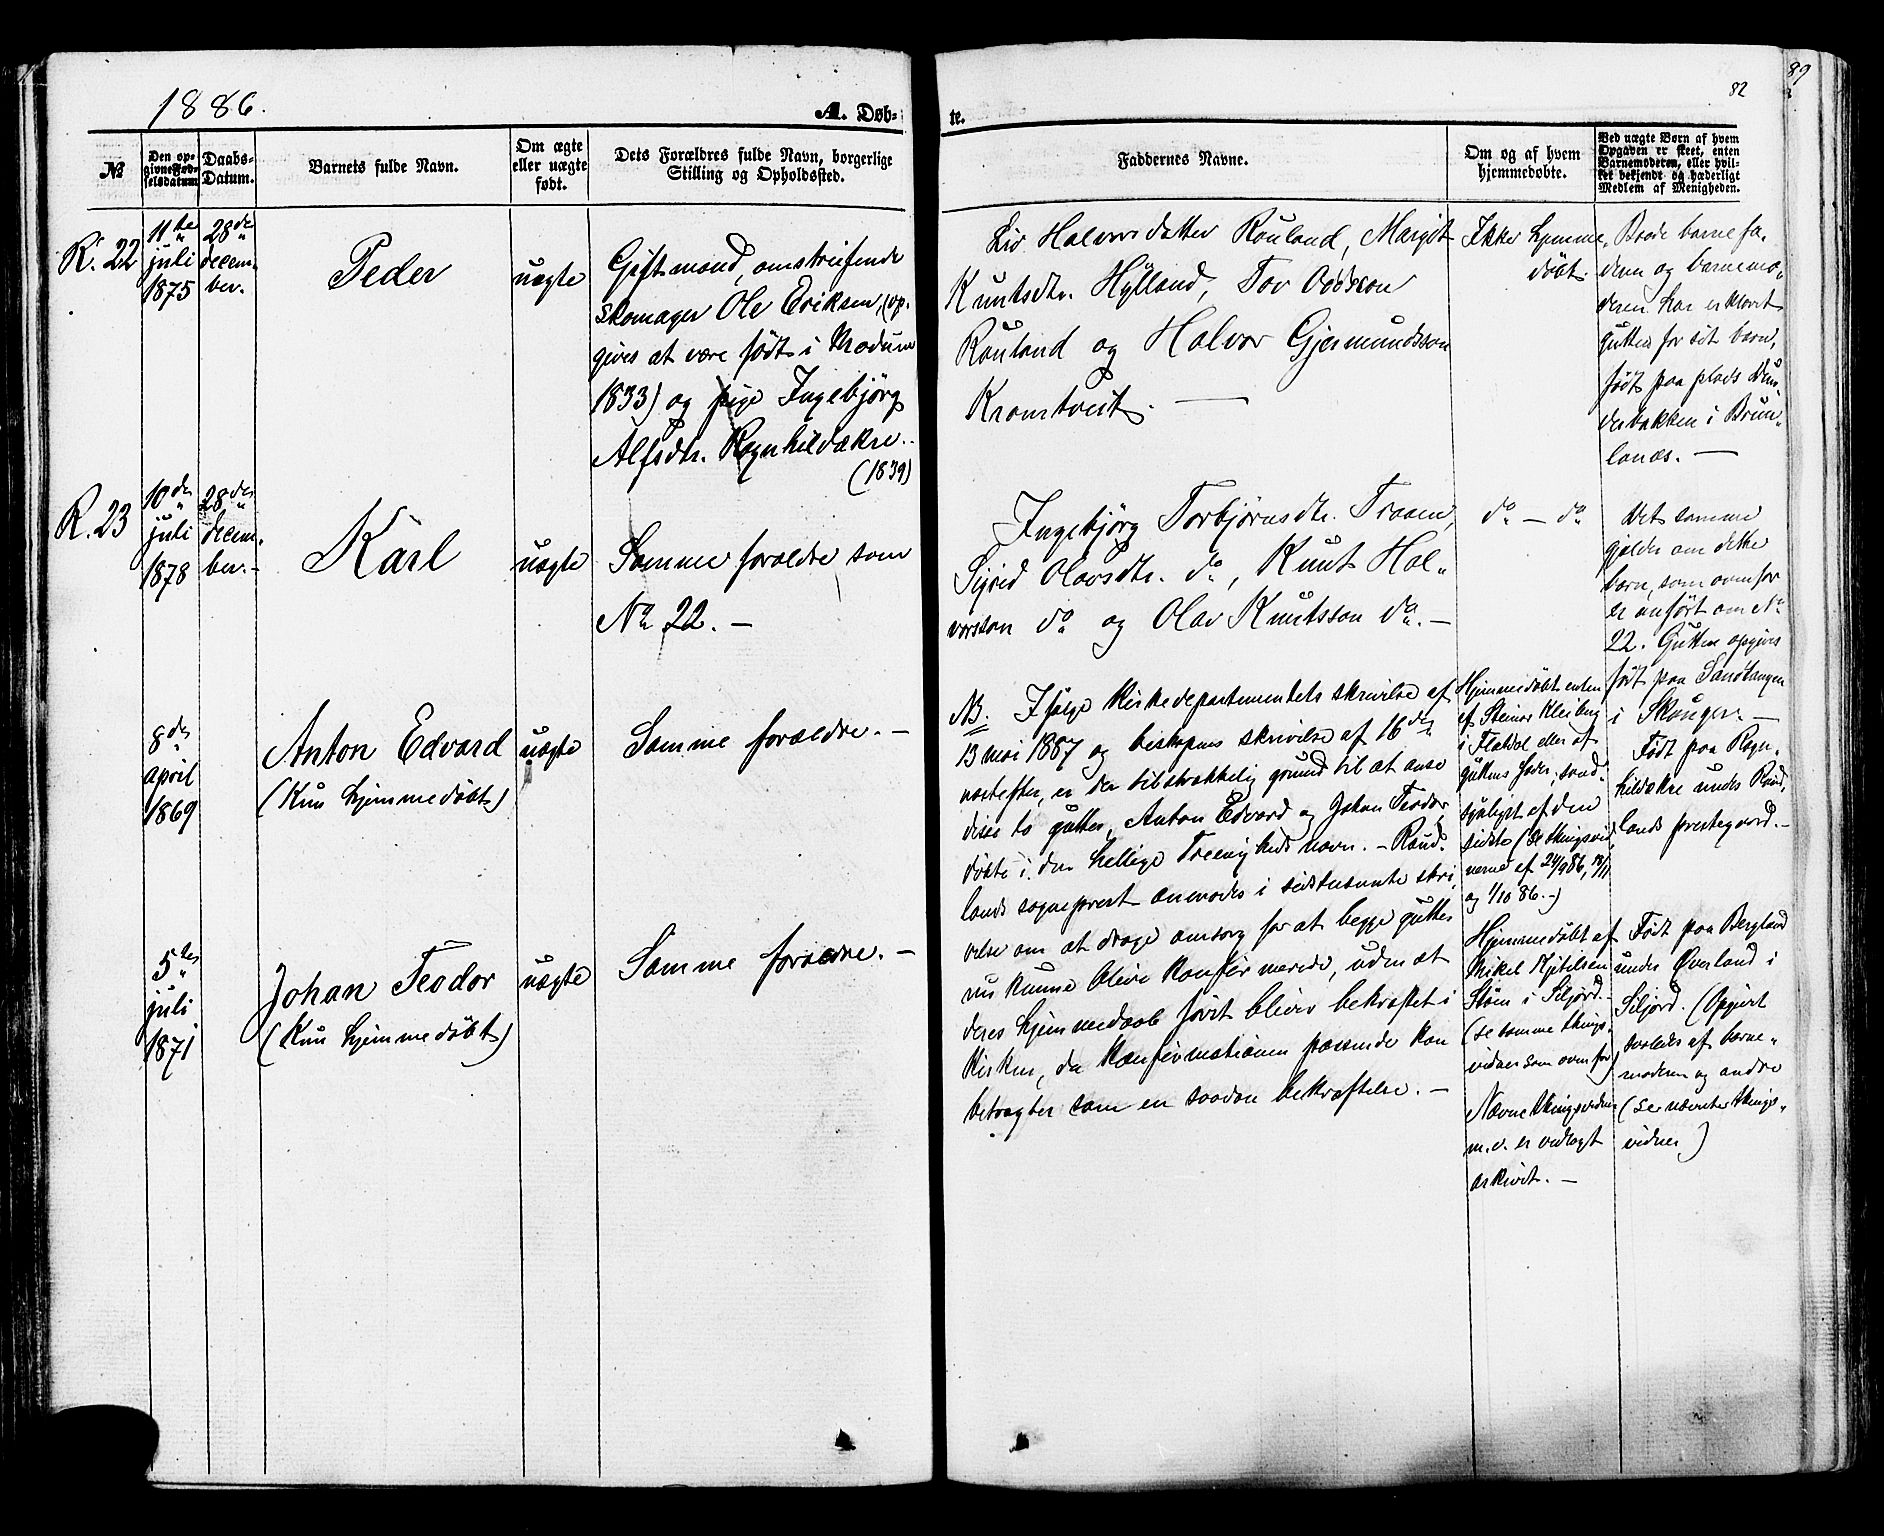 1886.
A. Døb-
№
Den op-
givne Fød-
selsdatum
Daabs-
Datum.
Barnets fulde Navn.
Om ægte
eller uægte
født.
Dets Forældres fulde Navn, borgerlige
Stilling og Opholdssted.
R. 22
11te
juli
1875
28de
decem-
ber.
Peder
uægte
Gift mand, omstreifende
skomager Ole Eriksen, (op-
gives at være født i Modum
1833) og pige Ingebjørg
Alfsdtr. Ragnhildækre..
(1839)
R. 23
10de
juli
1878
28de
decem-
ber.-
Karl
uægte
Samme foraldre som
No 22. -
8de
april
1869
Anton Edvard
(Kun hjemmedøbt)
uægte
Samme forældre. -
5te
juli
1871
Johan Teodor
(Kun hjemmedøbt)
uægte
Samme forældre. -
82
89
te.
Faddernes Navne.
Om og af hvem
hjemmedøbte.
Ved uægte Børn af hvem
Opgaven er skeet, enten
Barnemoderen, eller hvil-
ket bekjendt og hæderligt
Medlem af Menigheden.
Liv Halvorsdatter Rauland, Margit
Knutsdtr. Hylland, Tov Oddsson
Rauland og Halvor Gjermundsson
Kromtveit. -
Ikke hjemme-
døbt.
Baade barnefa-
deren og barnemo-
deren har erklæret
gutten for sit barn,
født paa plads
derbakken i Brun-
lanæs. -
Ingebjörg Torbjørnsdtr. Traaen,
Sigrid Olavsdtr. do, Knut Hal-
vorsson do og Olav Knutsson do. -
do - do
Det samme
gjelder om dette
barn, som ovenfor
er anført om No
22. Gutten opgives
født paa Sandtangen
i Skouger. -
NB. Ifølge Kirkedepartementets skrivelse af
13 mai 1887 og biskopens skrivelse af 16de
næstefter, er der tilstrækkelig grund til at anse
disse to gutter, Anton Edvard og Johan Teodor,
døbte i den hellige Treenigheds navn. - Raud-
lands sogneprest anmodes i sidstnævnte skri-
velse om at drage omsorg for at begge gutter
nu kunne blive konfirmerede, uden at
deres hjemmedaab først bliver bekræftet i
kirken, da konfirmationen passende kan
betragtes som en saadan bekræftelse. -
Hjemmedøbt enten
af Steinar Kleiberg
i Flatdal eller af
guttens fader, sand-
synligst af den
sidste (se thingsvid-
nerne af 24/9 86,
og 1/10 86. -)
Født paa Ragn-
hildækre under Raud-
lands prestegaard. -
Hjemmedøbt af
Mikel Kjitelsen
i Siljord. -
(se samme things-
vidner som ovenfor)
Nævnte thingsvidner
m.v. er vedlagt
arkivet. -
Født paa Bergland
under Øverland i
Siljord. (Opgivet
saaledes af barne-
moderen og andre
(se nævnte things-
vidner)